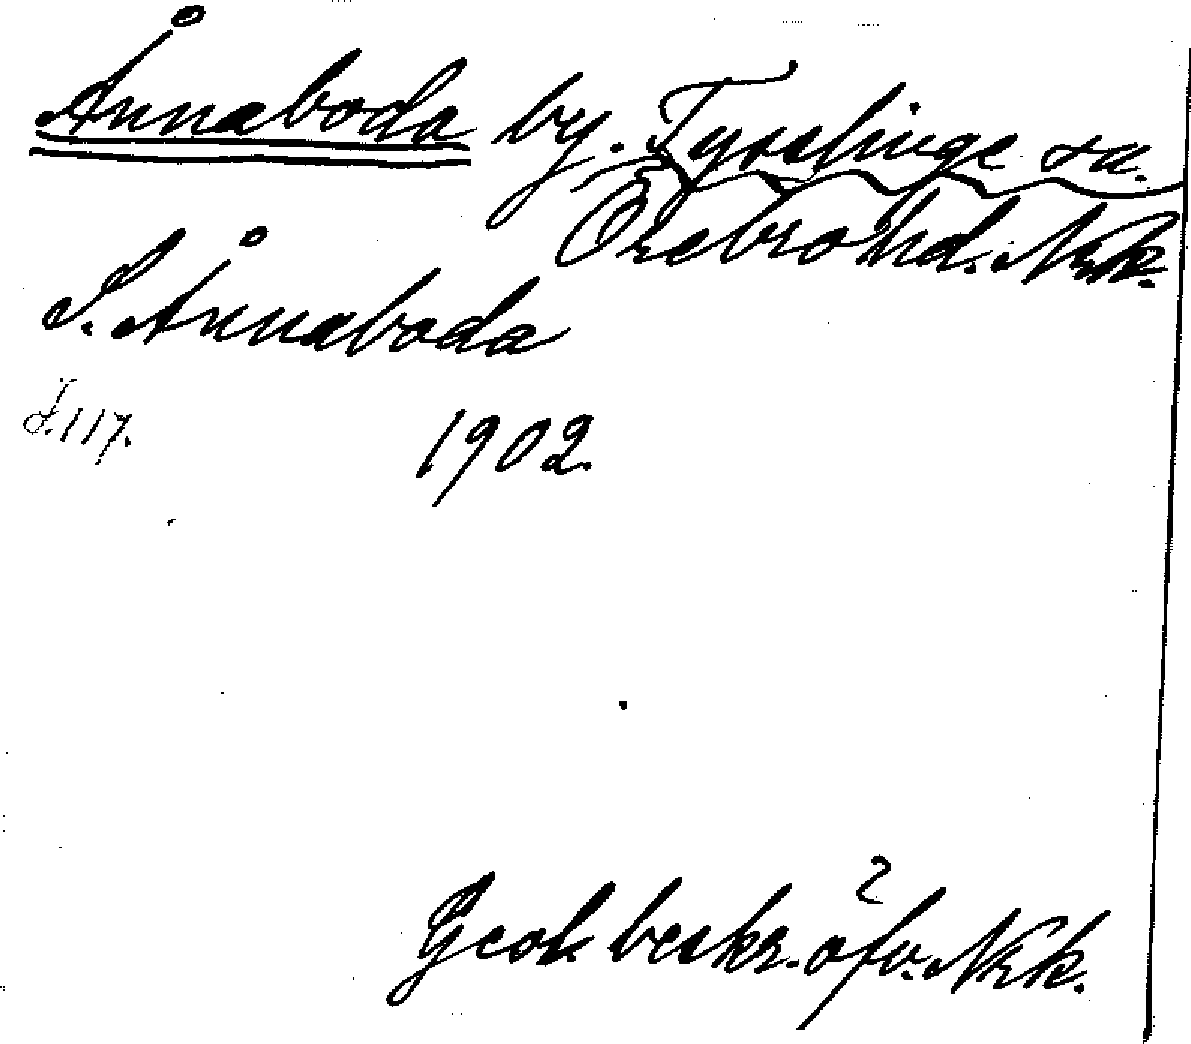 Ånnaboda by. Tysslinge sn.
Örebro hd. Nrk.
S. Ånnaboda
d. 117.
1902.
Geol. beskr. öfv. Nrk.